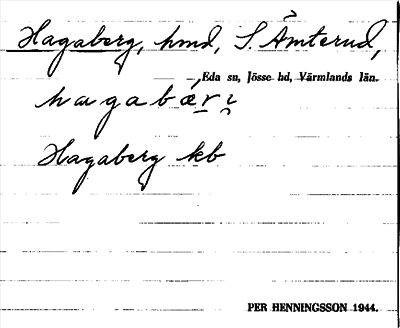 Hagaberg, hmd, S. Åmterud,
Eda sn, Jösse hd, Värmlands län.
Hagaberg kb
PER HENNINGSSON 1944.